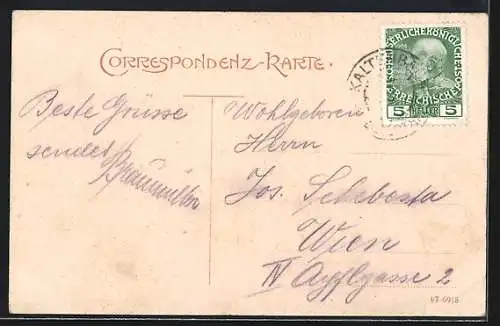 CORRESPONDENZ-KARTE.
KAISERLICHE KÖNIGLICHE
ÖSTERREICHISCHE
5 HELLER 5
KALT
Beste Grüsse
sendet
Wohlgeboren
Herrn
Jos. Schebesta
Wien
IV Apfelgasse 2